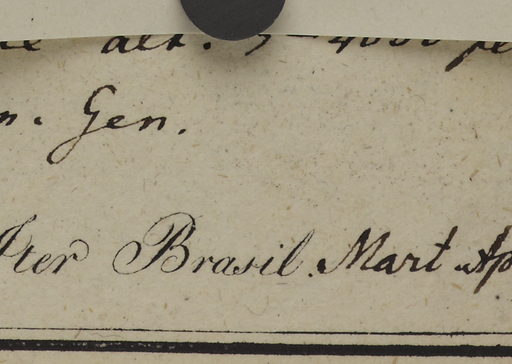 alt. 3-4000
Gen.
Iter Brasil. Mart. Ap